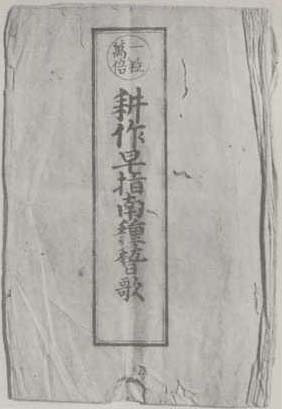 一粒
萬倍
耕作早指南種稽歌